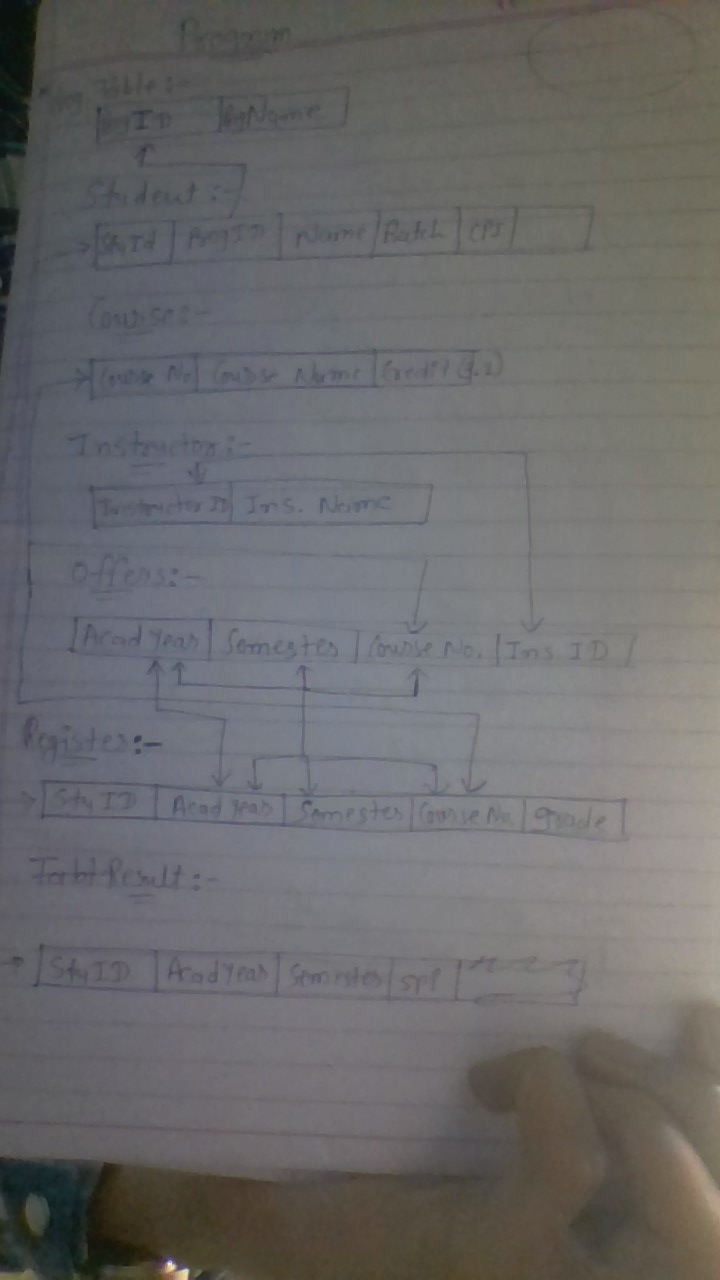 Program
Table:-
ProgID ProgName
Student:-
StuId ProgID Name Batch CPI
Course:-
Course No Course Name Credit
Instructor:-
Instructor ID Ins. Name
Offers:-
Acad Year Semester Course No. Ins ID
Register:-
StuID Acad Year Semester Course No. grade
Result:-
StuID Acad Year Semester SPI